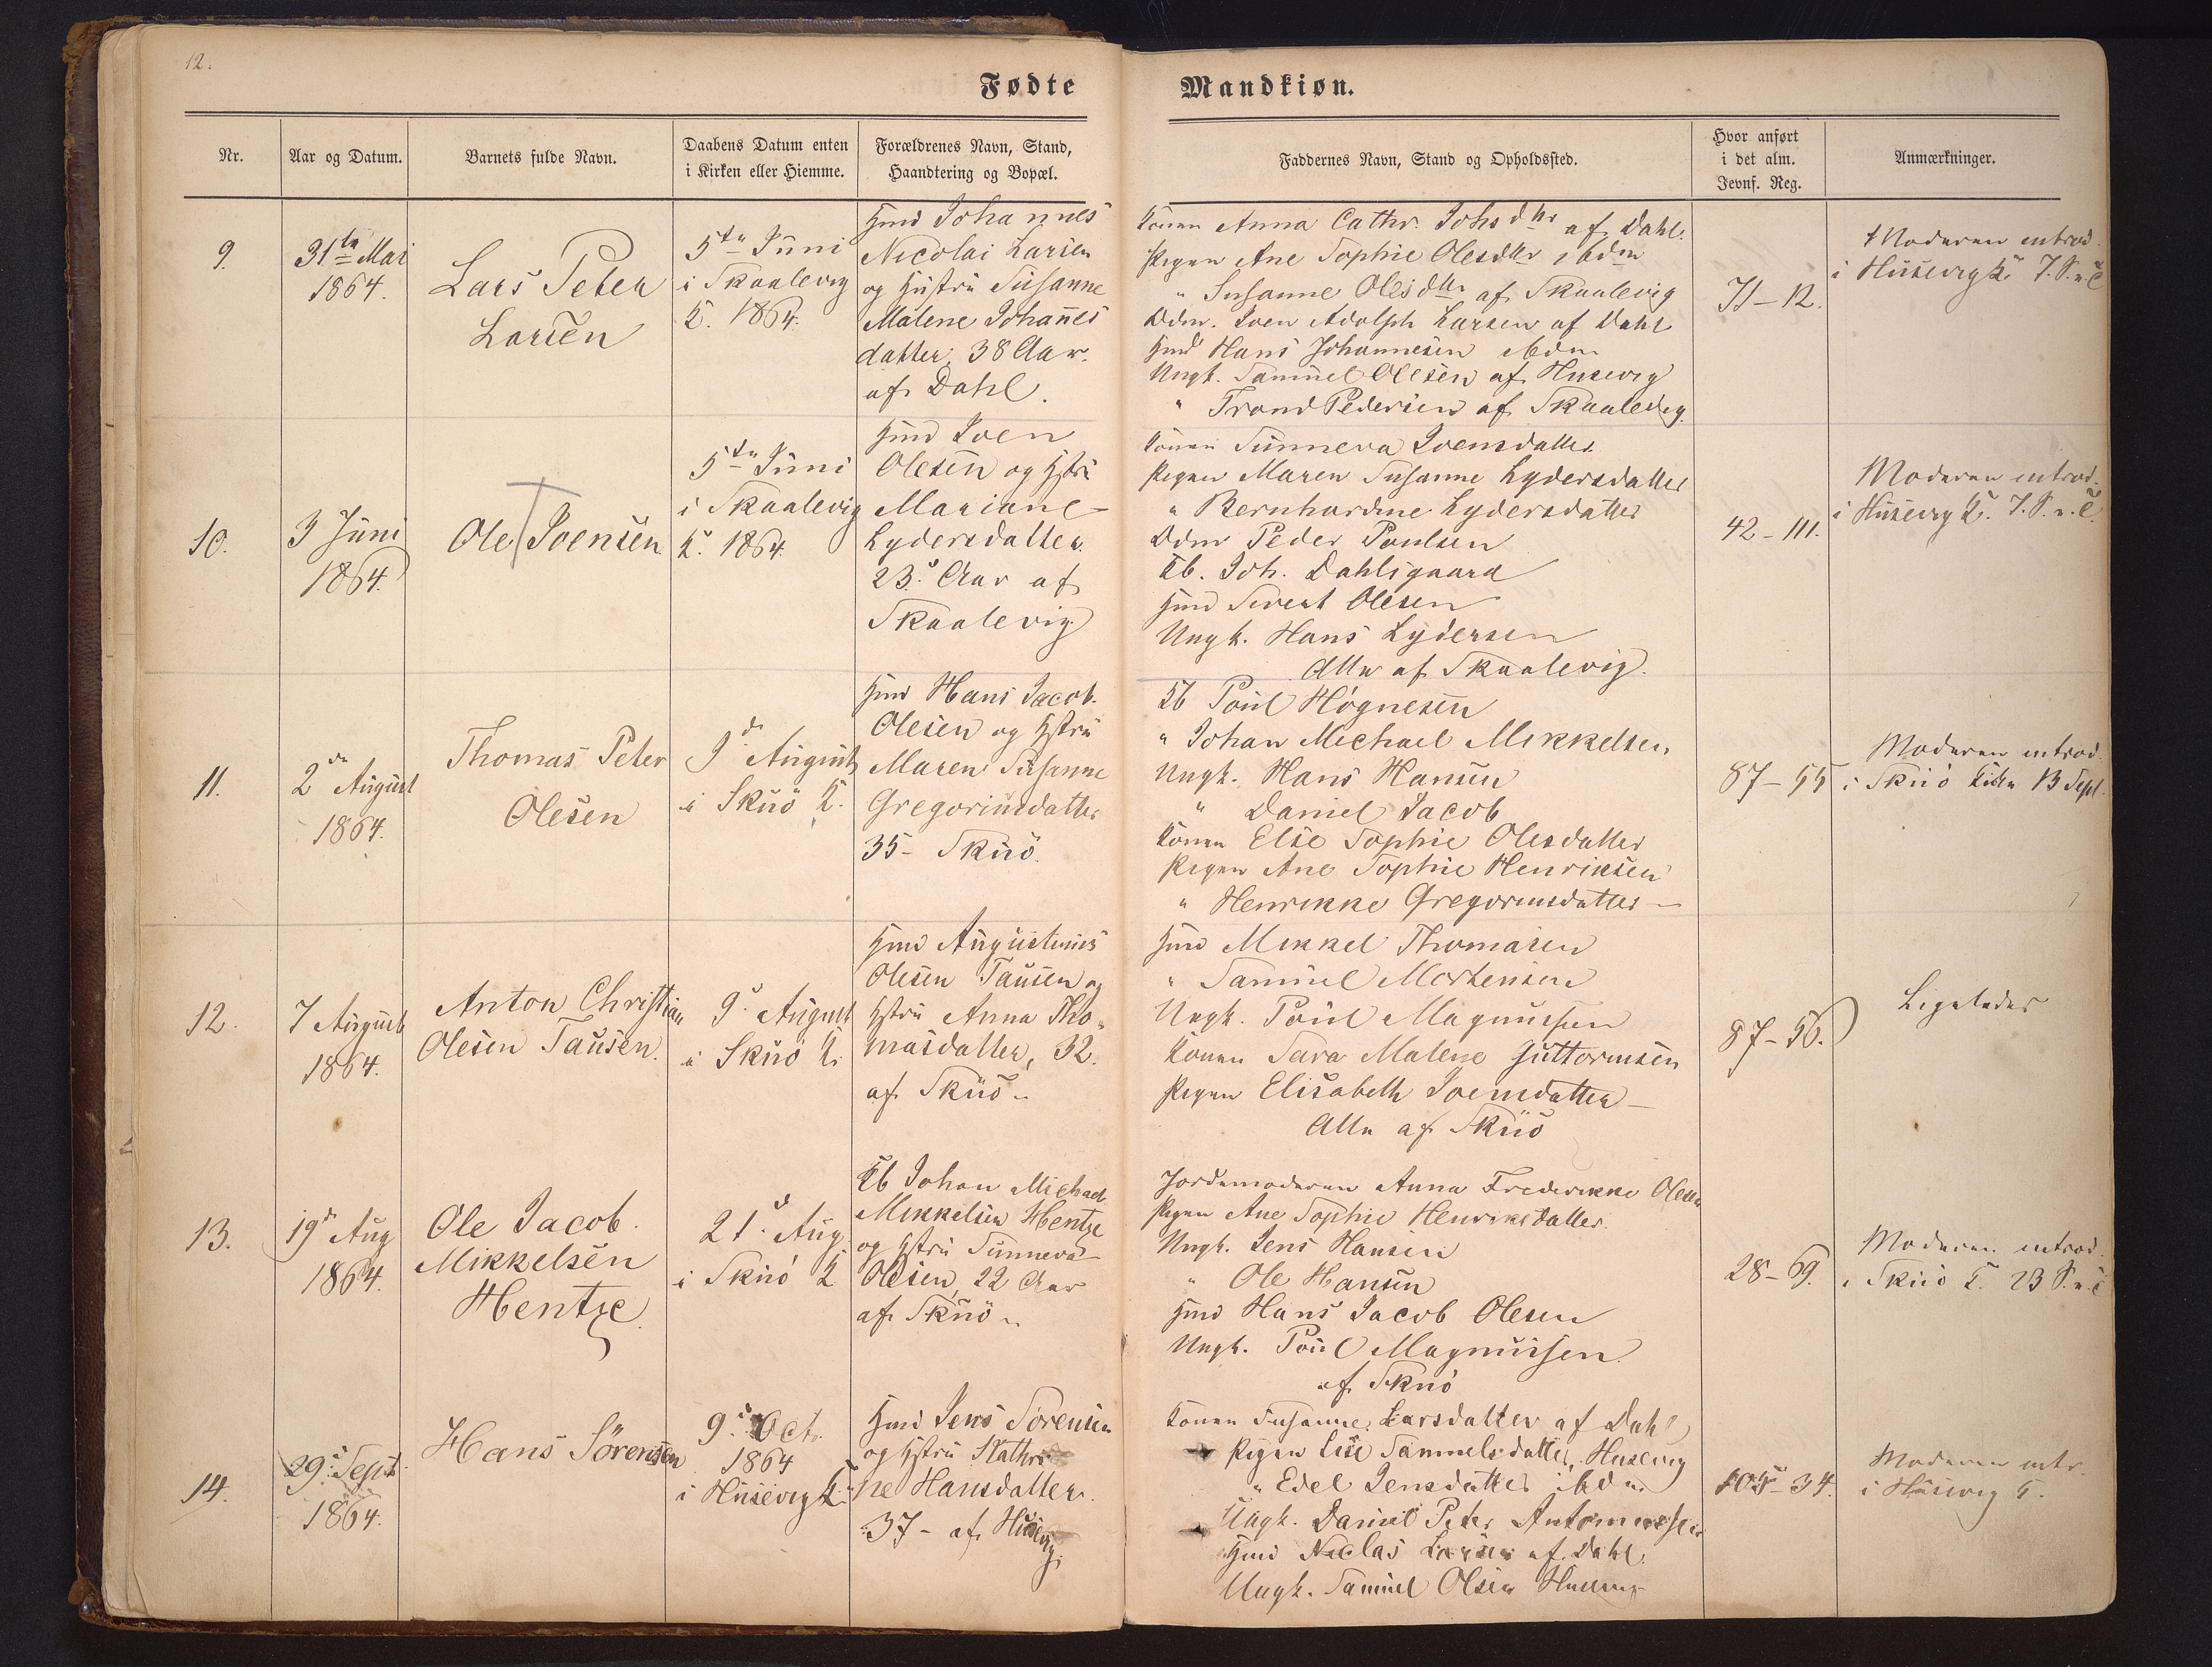 12.
Fødte
Mandkiøn.
Nr.
Aar og Datum.
Barnets fulde Navn.
Daabens Datum enten
i Kirken eller Hiemme.
Forældrenes Navn, Stand,
Haandtering og Bopæl.
Faddernes Navn, Stand og Opholdssted.
Hvor anført
i det alm.
Jevnf. Reg.
Anmærkninger.
9.
31te Mai
1864.
Lars Peter
Larsen
5te Juni
i Skaalevig
K. 1864.
Hmd Johannes
Nicolai Larsen
og Hustru Susanne
Malene Johannes
datter, 38 Aar.
af Dahl.
Konen Anna Cathr. Johsdtr af Dahl.
Pigen Ane Sophie Olesdtr ibdm
" Susanne Olesdtr af Skaalevig
Ddm. Joen Adolph Larsen af Dahl
Hmd Hans Johannesen ibdm
Ungk. Samuel Olesen af Husevig
" Trond Pedersen af Skaalevig.
71-12.
Moderen introd.
i Husevig K. 7. S. n. T.
10.
3 Juni
1864.
Ole Joensen
5te Juni
i Skaalevig
K. 1864.
Hmd Joen
Olesen og Hstru
Mariane
Lydersdatter
23 Aar af
Skaalevig
Konen Sunneva Joensdatter
Pigen Maren Susanne Lydersdatter
" Bernhardine Lydersdatter
Ddm Peder Poulsen
Kb. Joh. Dahlsgaard
Hmd Sivert Olesen
Ungk. Hans Lydersen
Alle af Skaalevig.
42-111.
Moderen introd.
i Husevig K. 7. S. n. T.
11.
2den August
1864.
Thomas Peter
Olesen
9d August
i Skuö K.
Hmd Hans Jacob
Olesen og Hstru
Maren Susanne
Gregoriusdatter
35- Skuö.
Kb Poul Högnesen
" Johan Michael Mikkelsen
Ungk. Hans Hansen
" Daniel Jacob
Konen Else Sophie Olesdatter
Pigen Ane Sophie Henriksen
" Henrikke Gregoriusdatter
87-55
Moderen introd.
i Skuö Kirke 13 Sept.
12.
7 August
1864.
Anton Christian
Olesen Tausen.
9d August
i Skuö K.
Hmd Augustinus
Olesen Tausen og
Hstru Anna Tho-
masdatter, 32.
af Skuö
Hmd Mikkel Thomasen
" Samuel Mortensen
Ungk. Poul Magnussen
Konen Sara Malene Guttormsen
Pigen Elisabeth Joensdatter
Alle af Skuö
87-56.
Ligeledes
13.
19d Aug
1864.
Ole Jacob
Mikkelsen
Hentze
21d Aug.
i Skuö K
Kb Johan Michael
Mikkelsen Hentze
og Hstru Sunneva
Olesen, 22 Aar
af Skuö
Jordemoderen Anna Frederikke Olesen
Pigen Ane Sophie Henriksdatter.
Ungk. Jens Hansen
" Ole Hansen
Hmd Hans Jacob Olesen
Ungk. Poul Magnussen
af Skuö
28-69.
Moderen introd.
i Skuö K. 23 S. n. T
14.
29d Sept.
1864.
Hans Sörensen
9d Oct.
1864
i Husevig K.
Hmd Jens Sörensen
og Hstru Kathri
ne Hansdatter.
37- af Husevig.
Konen Susanne Larsdatter af Dahl
Pigen Lise Samuelsdatter, Husevig
" Edel Jensdatter ibdm
Ungk. Daniel Peter
Hmd Niclas Larsen af Dahl.
Ungk. Samuel Olsen Husevig
105-34.
Moderen intr.
i Husevig K.